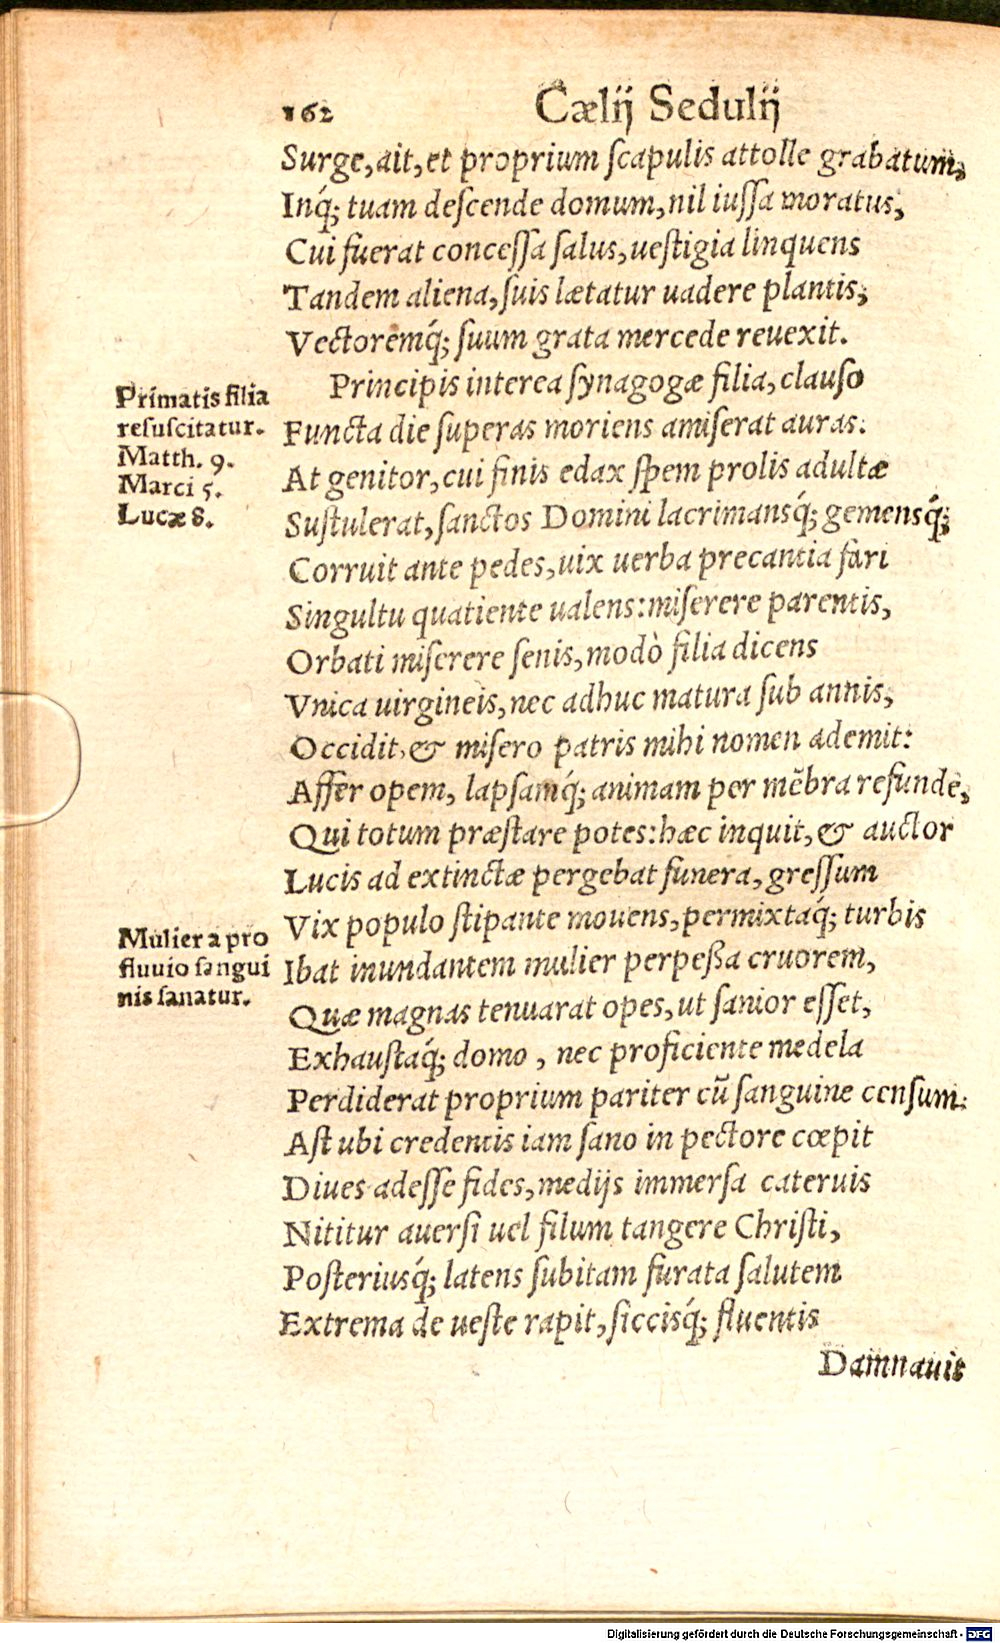 162 Cælij Sedulij
Surge, ait, et proprium ſcapulis attolle grabatum,
Inq́; tuam deſcende domum, nil iuſſa moratus,
Cui fuerat conceſſa ſalus, ueſtigia linquens
Tandem aliena, ſuis lætatur uadere plantis,
Vectoremq́; ſuum grata mercede reuexit.
Principis interea ſynagogæ filia, clauſo
Functa die ſuperas moriens amiſerat auras.
At genitor, cui finis edax ſpem prolis adultæ
Suſtulerat, ſanctos Domini lacrimansq́; gemensq́;
Corruit ante pedes, uix uerba precantia fari
Singultu quatiente ualens: miſerere parentis,
Orbati miſerere ſenis, modò filia dicens
Vnica uirgineis, nec adhuc matura ſub annis,
Occidit, & miſero patris mihi nomen ademit:
Affer opem, lapſamq́; animam per mẽbra refunde,
Qui totum præſtare potes: hæc inquit, & auctor
Lucis ad extinctæ pergebat funera, greſſum
Vix populo ſtipante mouens, permixtaq́; turbis
Ibat inundantem mulier perpeßa cruorem,
Quæ magnas tenuarat opes, ut ſanior eſſet,
Exhauſtaq́; domo, nec proficiente medela
Perdiderat proprium pariter cũ ſanguine cenſum.
Aſt ubi credentis iam ſano in pectore cœpit
Diues adeſſe fides, medijs immerſa cateruis
Nititur auerſi uel filum tangere Chriſti,
Poſteriusq́; latens ſubitam furata ſalutem
Extrema de ueſte rapit, ſiccisq́; fluentis
Damnauit
Primatis filia
reſuſcitatur.
Matth. 9.
Marci 5.
Lucæ 8.
Mulier a pro
fluuio ſangui
nis ſanatur.
Digitalisierung gefördert durch die Deutsche Forschungsgemeinschaft - DFG